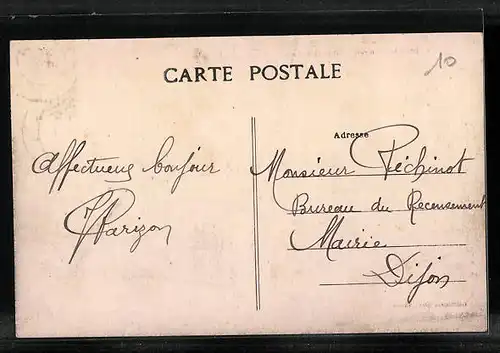 CARTE POSTALE
10
Affectueux bonjour
Parizon
Adresse
Monsieur Péchinot
Bureau du Recensement
Mairie
Dijon